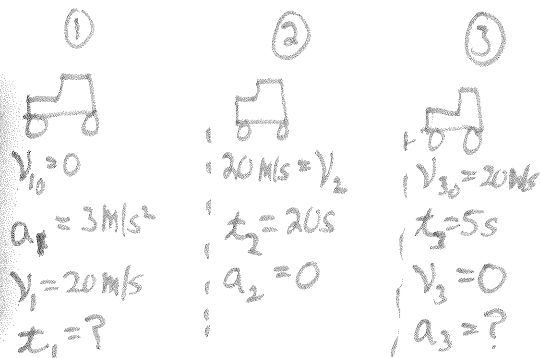 ①
V₁₀=0
a₁=3M/s²
V₁=20m/s
t₁=?
②
20M/s=V₂
t₂=20s
a₂=0
③
V₃₀=20M/s
t₃=5s
V₃=0
a₃=?